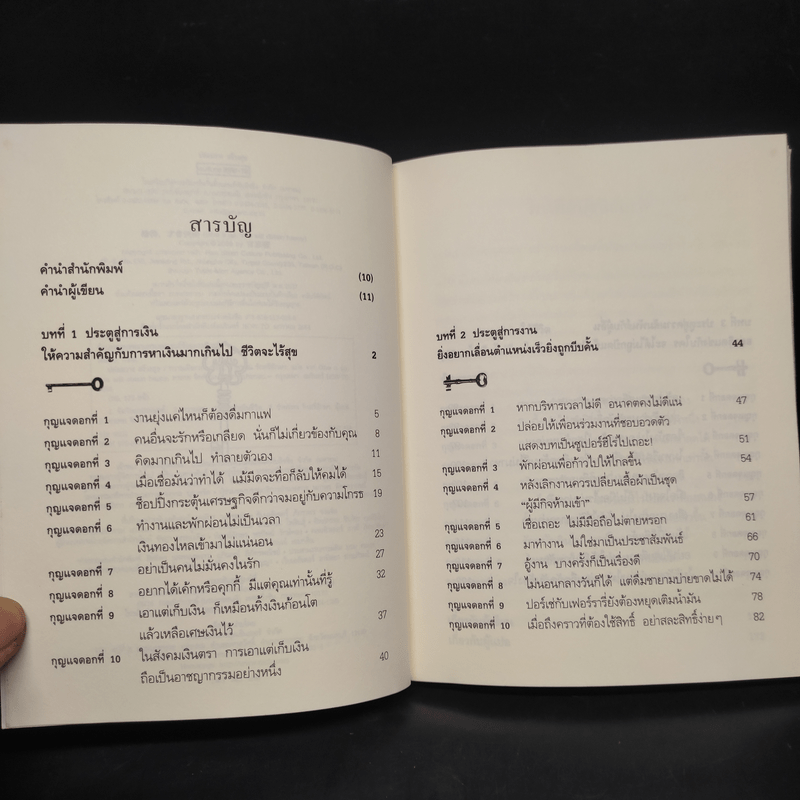 สารบัญ
คำนำสำนักพิมพ์ (10)
คำนำผู้เขียน (11)
บทที่ 1 ประตูสู่การเงิน
ให้ความสำคัญกับการหาเงินมากเกินไป ชีวิตจะไร้สุข 2
กุญแจดอกที่ 1 งานยุ่งแค่ไหนก็ต้องดื่มกาแฟ 5
กุญแจดอกที่ 2 คนอื่นจะรักหรือเกลียด นั่นก็ไม่เกี่ยวข้องกับคุณ 8
กุญแจดอกที่ 3 คิดมากเกินไป ทำลายตัวเอง 11
กุญแจดอกที่ 4 เมื่อเชื่อมั่นว่าทำได้ แม้มีดจะทื่อก็ลับให้คมได้ 15
กุญแจดอกที่ 5 ช็อปปิ้งกระตุ้นเศรษฐกิจดีกว่าจมอยู่กับความโกรธ 19
กุญแจดอกที่ 6 ทำงานและพักผ่อนไม่เป็นเวลา
เงินทองไหลเข้ามาไม่แน่นอน 23
กุญแจดอกที่ 7 อย่าเป็นคนไม่มั่นคงในรัก 27
กุญแจดอกที่ 8 อยากได้เค้กหรือคุกกี้ มีแต่คุณเท่านั้นที่รู้ 32
กุญแจดอกที่ 9 เอาแต่เก็บเงิน ก็เหมือนทิ้งเงินก้อนโต
แล้วเหลือเศษเงินไว้ 37
กุญแจดอกที่ 10 ในสังคมเงินตรา การเอาแต่เก็บเงิน
ถือเป็นอาชญากรรมอย่างหนึ่ง 40
บทที่ 2 ประตูสู่การงาน
ยิ่งอยากเลื่อนตำแหน่งเร็วยิ่งถูกบีบคั้น 44
กุญแจดอกที่ 1 หากบริหารเวลาไม่ดี อนาคตคงไม่ดีแน่ 47
กุญแจดอกที่ 2 ปล่อยให้เพื่อนร่วมงานที่ชอบอวดตัว
แสดงบทเป็นซูเปอร์ฮีโร่ไปเถอะ! 51
กุญแจดอกที่ 3 พักผ่อนเพื่อก้าวไปให้ไกลขึ้น 54
กุญแจดอกที่ 4 หลังเลิกงานควรเปลี่ยนเสื้อผ้าเป็นชุด
"ผู้มีกิจห้ามเข้า" 57
กุญแจดอกที่ 5 เชื่อเถอะ ไม่มีมือถือไม่ตายหรอก 61
กุญแจดอกที่ 6 มาทำงาน ไม่ใช่มาเป็นประชาสัมพันธ์ 66
กุญแจดอกที่ 7 อู้งาน บางครั้งก็เป็นเรื่องดี 70
กุญแจดอกที่ 8 ไม่นอนกลางวันก็ได้ แต่ดื่มชายามบ่ายขาดไม่ได้ 74
กุญแจดอกที่ 9 ปอร์เช่กับเฟอร์รารี่ยังต้องหยุดเติมน้ำมัน 78
กุญแจดอกที่ 10 เมื่อถึงคราวที่ต้องใช้สิทธิ์ อย่าสละสิทธิ์ง่ายๆ 82